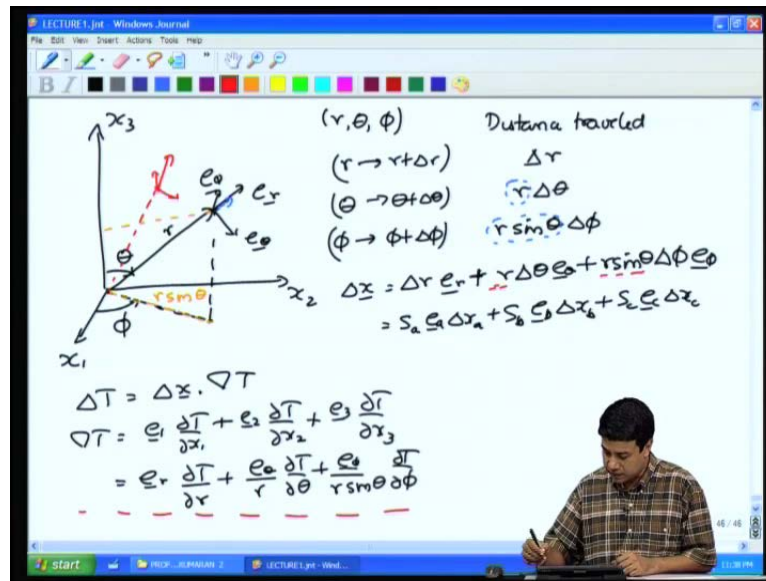 LECTURE1.jnt - Windows Journal
File Edit View Insert Actions Tools Help
B I
x₃
(r, θ, ϕ) Distana traveled
(r → r+Δr) Δr
(θ → θ+Δθ) rΔθ
(ϕ → ϕ+Δϕ) r sinθ Δϕ
e_ϕ
e_r
e_θ
r
θ
r sinθ
x₂
ϕ
x₁
Δx = Δr e_r + rΔθ e_θ + r sinθ Δϕ e_ϕ
= S_a e_a Δx_a + S_b e_b Δx_b + S_c e_c Δx_c
ΔT = Δx . ∇T
∇T = e₁ ∂T/∂x₁ + e₂ ∂T/∂x₂ + e₃ ∂T/∂x₃
= e_r ∂T/∂r + e_θ/r ∂T/∂θ + e_ϕ/(r sinθ) ∂T/∂ϕ
46 / 46
start PROF...KUMARAN 2 LECTURE1.jnt - Wind... 11:38 PM